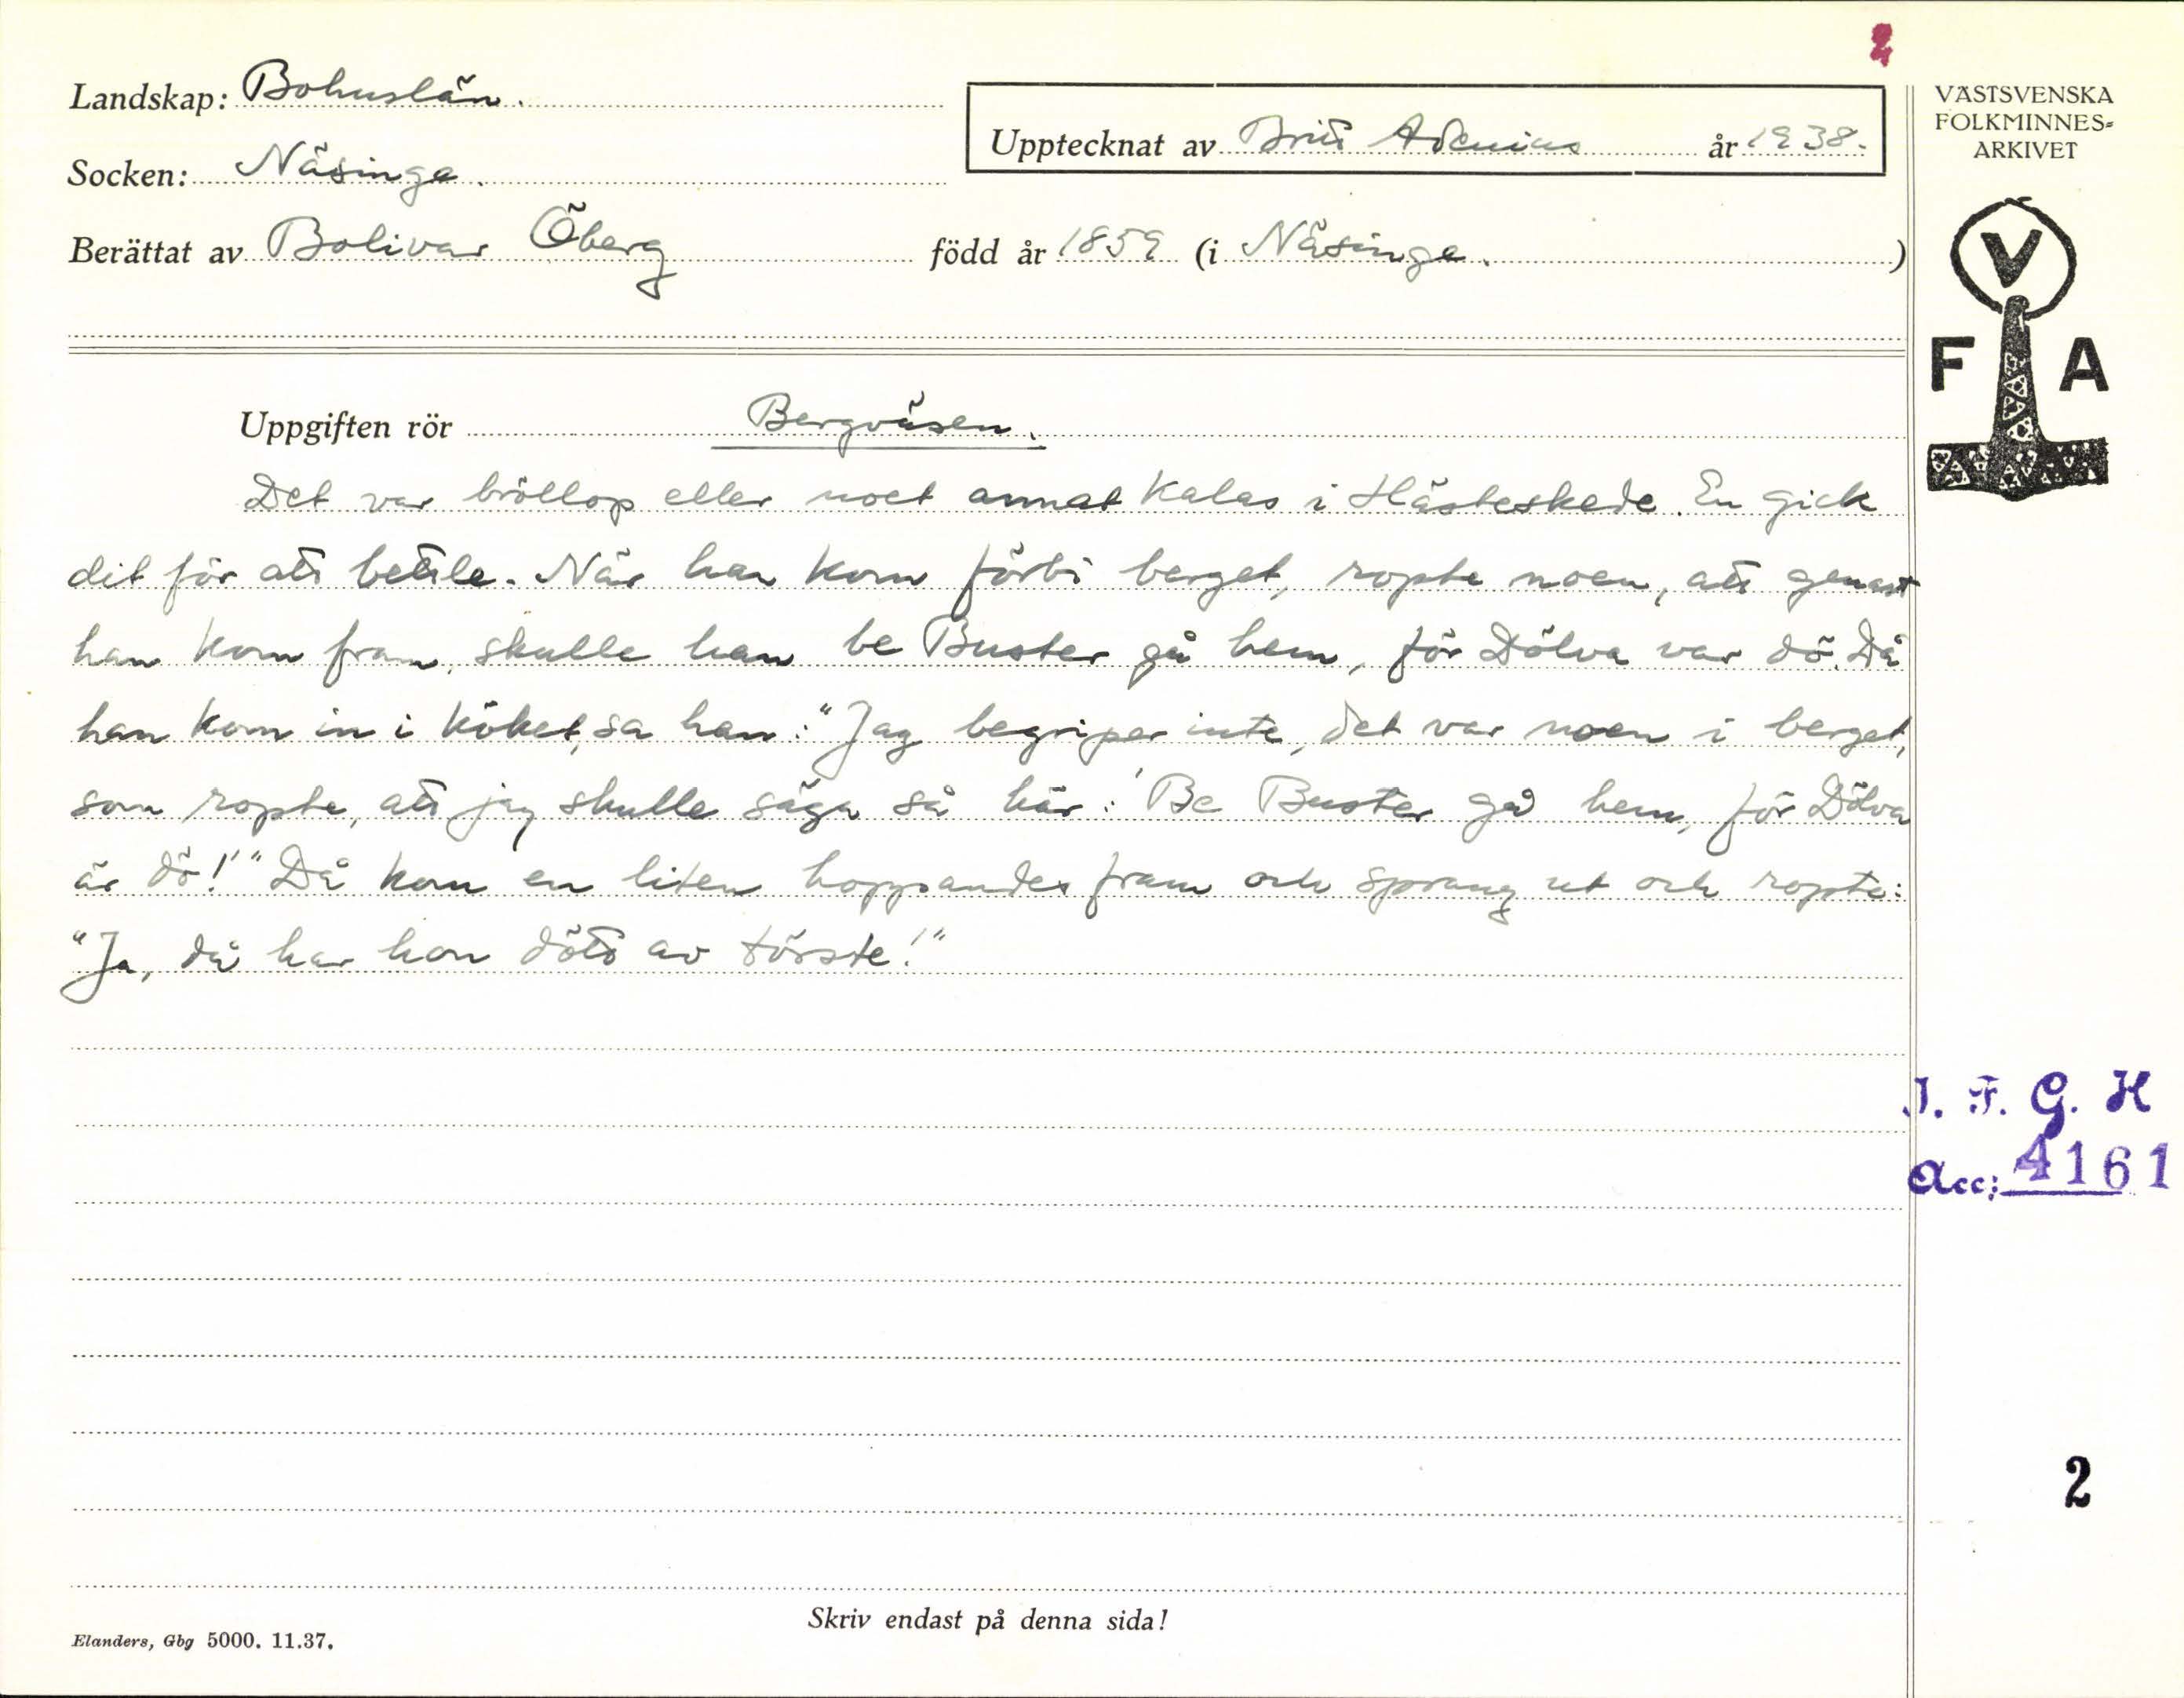 2
Landskap: Bohuslän.
Upptecknat av Britt Adenius år 1938.
Socken: Näsinge.
Berättat av Bolivar Öberg född år 1859 (i Näsinge.)
Uppgiften rör Bergväsen.
Det var bröllop eller noet annat kalas i Hästeskede. En gick
dit för att betile. När han kom förbi berget, ropte noen, att genast
han kom fram, skulle han be Buster gå hem, för Dölva var dö. Då
han kom in i köket, sa han: "Jag begriper inte, det var noen i berget,
som ropte, att jag skulle säga så här: 'Be Buster gå hem, för Dölva
är dö!'" Då kom en liten hoppandes fram och sprang ut och ropte:
"Ja, då har hon dött av törste!"
VÄSTSVENSKA
FOLKMINNES=
ARKIVET
V
F A
I. F. G. H
Acc: 4161
2
Skriv endast på denna sida!
Elanders, Gbg 5000. 11.37.